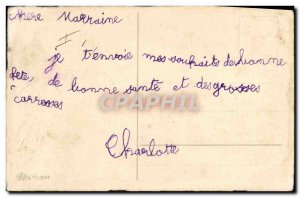 Chère Marraine
je t'envoie mes souhaits de bonne
fête, de bonne santé et des grosses
carresses
Charlotte
CPAPHIL.COM